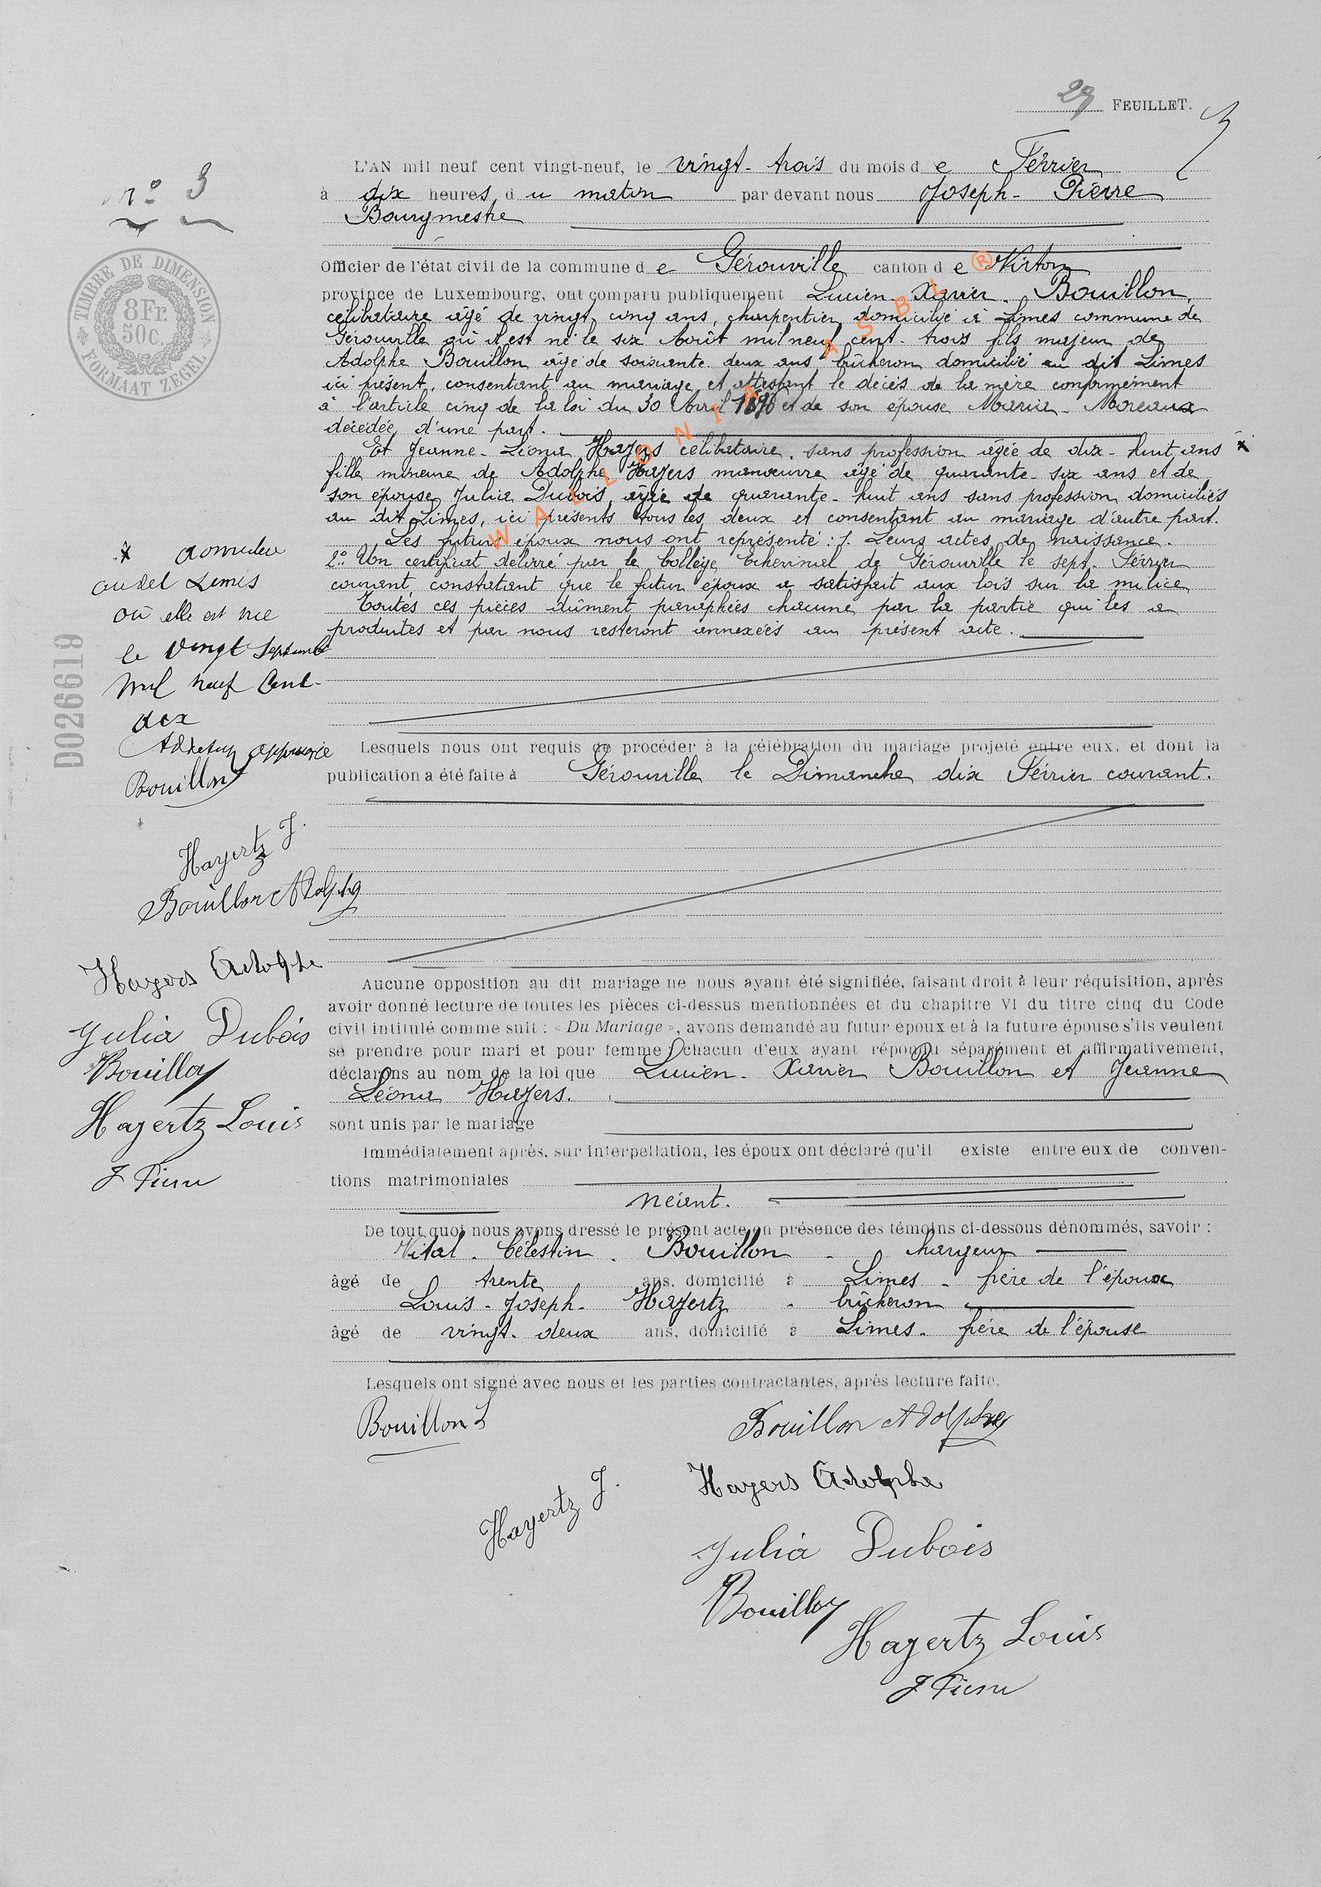 29 FEUILLET. 3
N° 3
L'AN mil neuf cent vingt-neuf, le vingt-trois du mois d e Février
à dix heures, d u matin par devant nous Joseph - Pierre
Bourgmestre
TIMBRE DE DIMENSION
8Fr.
50c
FORMAAT ZEGEL
Officier de l'état civil de la commune d e Gérouville canton d e Virton
province de Luxembourg, ont comparu publiquement Lucien - Xavier - Bouillon,
célibataire âgé de vingt cinq ans, charpentier domicilié à Limes commune de
Gérouville où il est né le six Août mil neuf cent - trois fils majeur de
Adolphe Bouillon âgé de soixante deux ans bûcheron domicilié au dit Limes
ici présent, consentant au mariage et attestant le décès de la mère conformément
à l'article cinq de la loi du 30 Avril 1896 et de son épouse Maria - Moreaux
décédée, d'une part.
Et Jeanne - Léona Hayers célibataire, sans profession âgée de dix - huit ans x
fille mineure de Adolphe Hayers manœuvre âgé de quarante - six ans et de
son épouse Julia Dubois, âgée de quarante - huit ans sans profession domiciliés
au dit Limes, ici présents tous les deux et consentant au mariage d'autre part.
Les futurs époux nous ont représenté : 1. Leurs actes de naissance.
2° Un certificat délivré par le Collège Echevinal de Gérouville le sept Février
courant, constatant que le futur époux a satisfait aux lois sur la milice
Toutes ces pièces dûment paraphées chacune par la partie qui les a
produites et par nous resteront annexées au présent acte.
WALLONIA ASBL ®
x domiciliée
audit Limes
où elle est née
le vingt septembre
mil neuf cent-
dix
Addition approuvée
Bouillon
D026619
Lesquels nous ont requis de procéder à la célébration du mariage projeté entre eux, et dont la
publication a été faite à Gérouville le Dimanche dix Février courant.
Hayertz J.
Bouillon Adolphe
Hayers Adolphe
Julia Dubois
Bouillon
Hayertz Louis
J Pierre
Aucune opposition au dit mariage ne nous ayant été signifiée, faisant droit à leur réquisition, après
avoir donné lecture de toutes les pièces ci-dessus mentionnées et du chapitre VI du titre cinq du Code
civil intitulé comme suit : « Du Mariage », avons demandé au futur époux et à la future épouse s'ils veulent
se prendre pour mari et pour femme, chacun d'eux ayant répondu séparément et affirmativement,
déclarons au nom de la loi que Lucien - Xavier Bouillon et Jeanne
Léona Hayers.
sont unis par le mariage
Immédiatement après, sur interpellation, les époux ont déclaré qu'il existe entre eux de conven-
tions matrimoniales
néant.
De tout quoi nous avons dressé le présent acte en présence des témoins ci-dessous dénommés, savoir :
Vital - Célestin - Bouillon - chargeur
âgé de trente ans, domicilié à Limes - frère de l'époux
Louis - Joseph - Hayertz - bûcheron
âgé de vingt - deux ans, domicilié à Limes - frère de l'épouse
Lesquels ont signé avec nous et les parties contractantes, après lecture faite.
Bouillon L
Bouillon Adolphe
Hayertz J.
Hayers Adolphe
Julia Dubois
Bouillon
Hayertz Louis
J Pierre